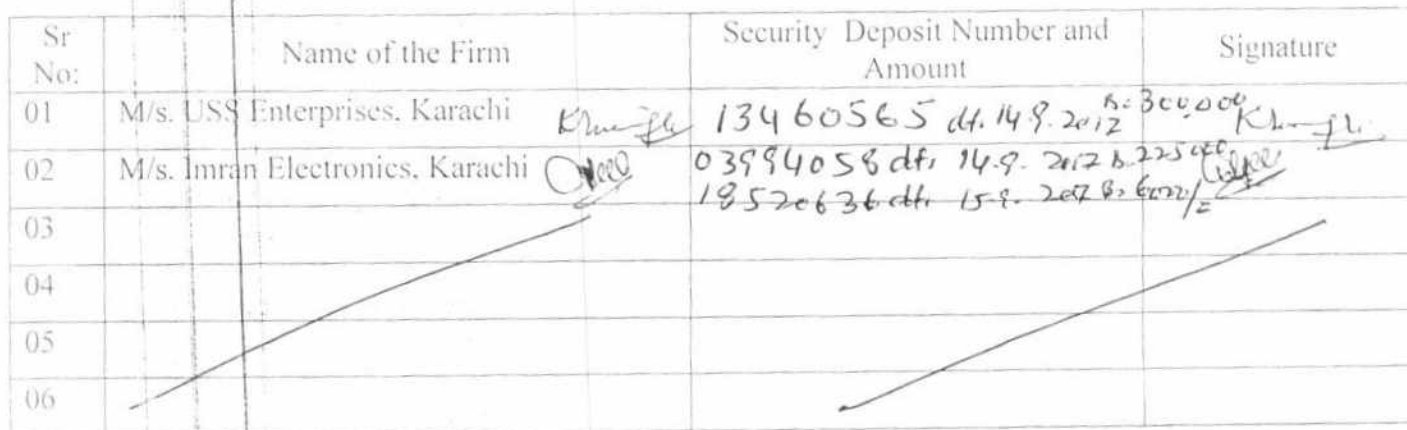 Sr No: Name of the Firm Security Deposit Number and Amount Signature
01 M/s. USS Enterprises, Karachi 13460565 dt. 14.9.2012 Rs. 300,000
02 M/s. Imran Electronics, Karachi 03994058 dt. 14.9.2012 Rs. 225000
18520636 dt. 15.9.2012 Rs.
03
04
05
06